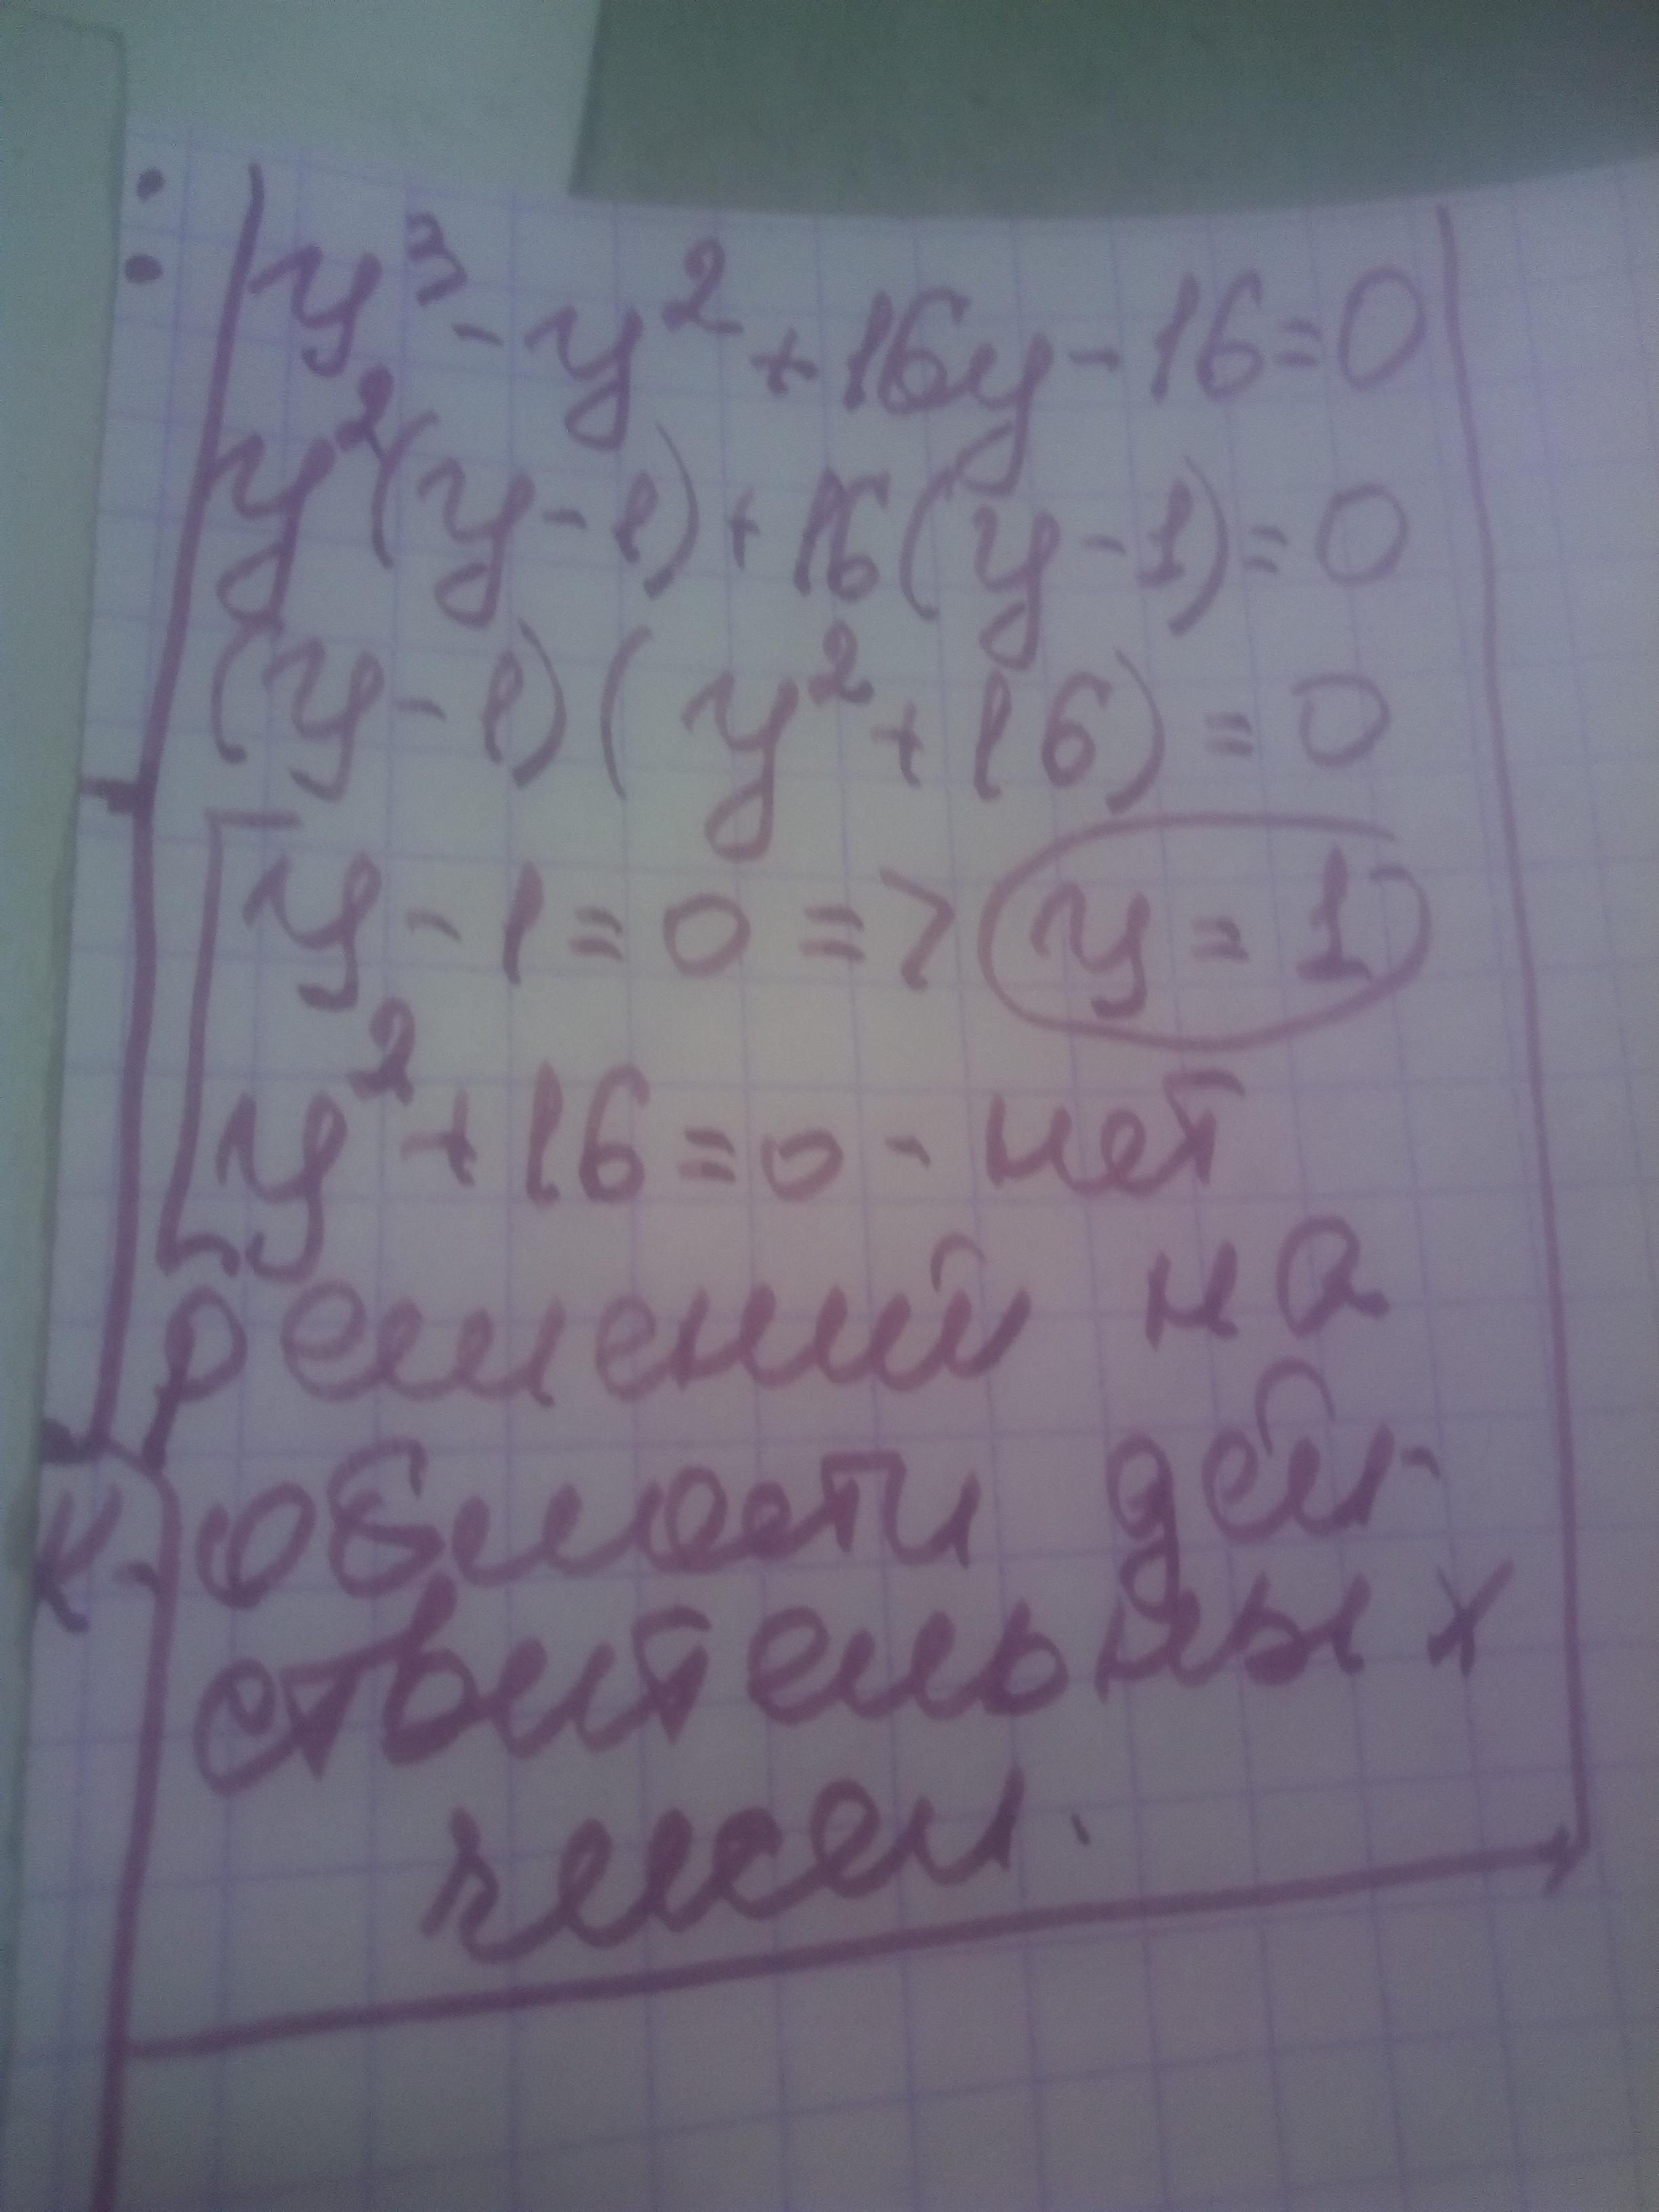 y³ - y² + 16y - 16 = 0
y²(y - 1) + 16(y - 1) = 0
(y - 1)(y² + 16) = 0
y - 1 = 0 => y = 1
y² + 16 = 0 - нет
решений на
области дей-
ствительных
чисел.